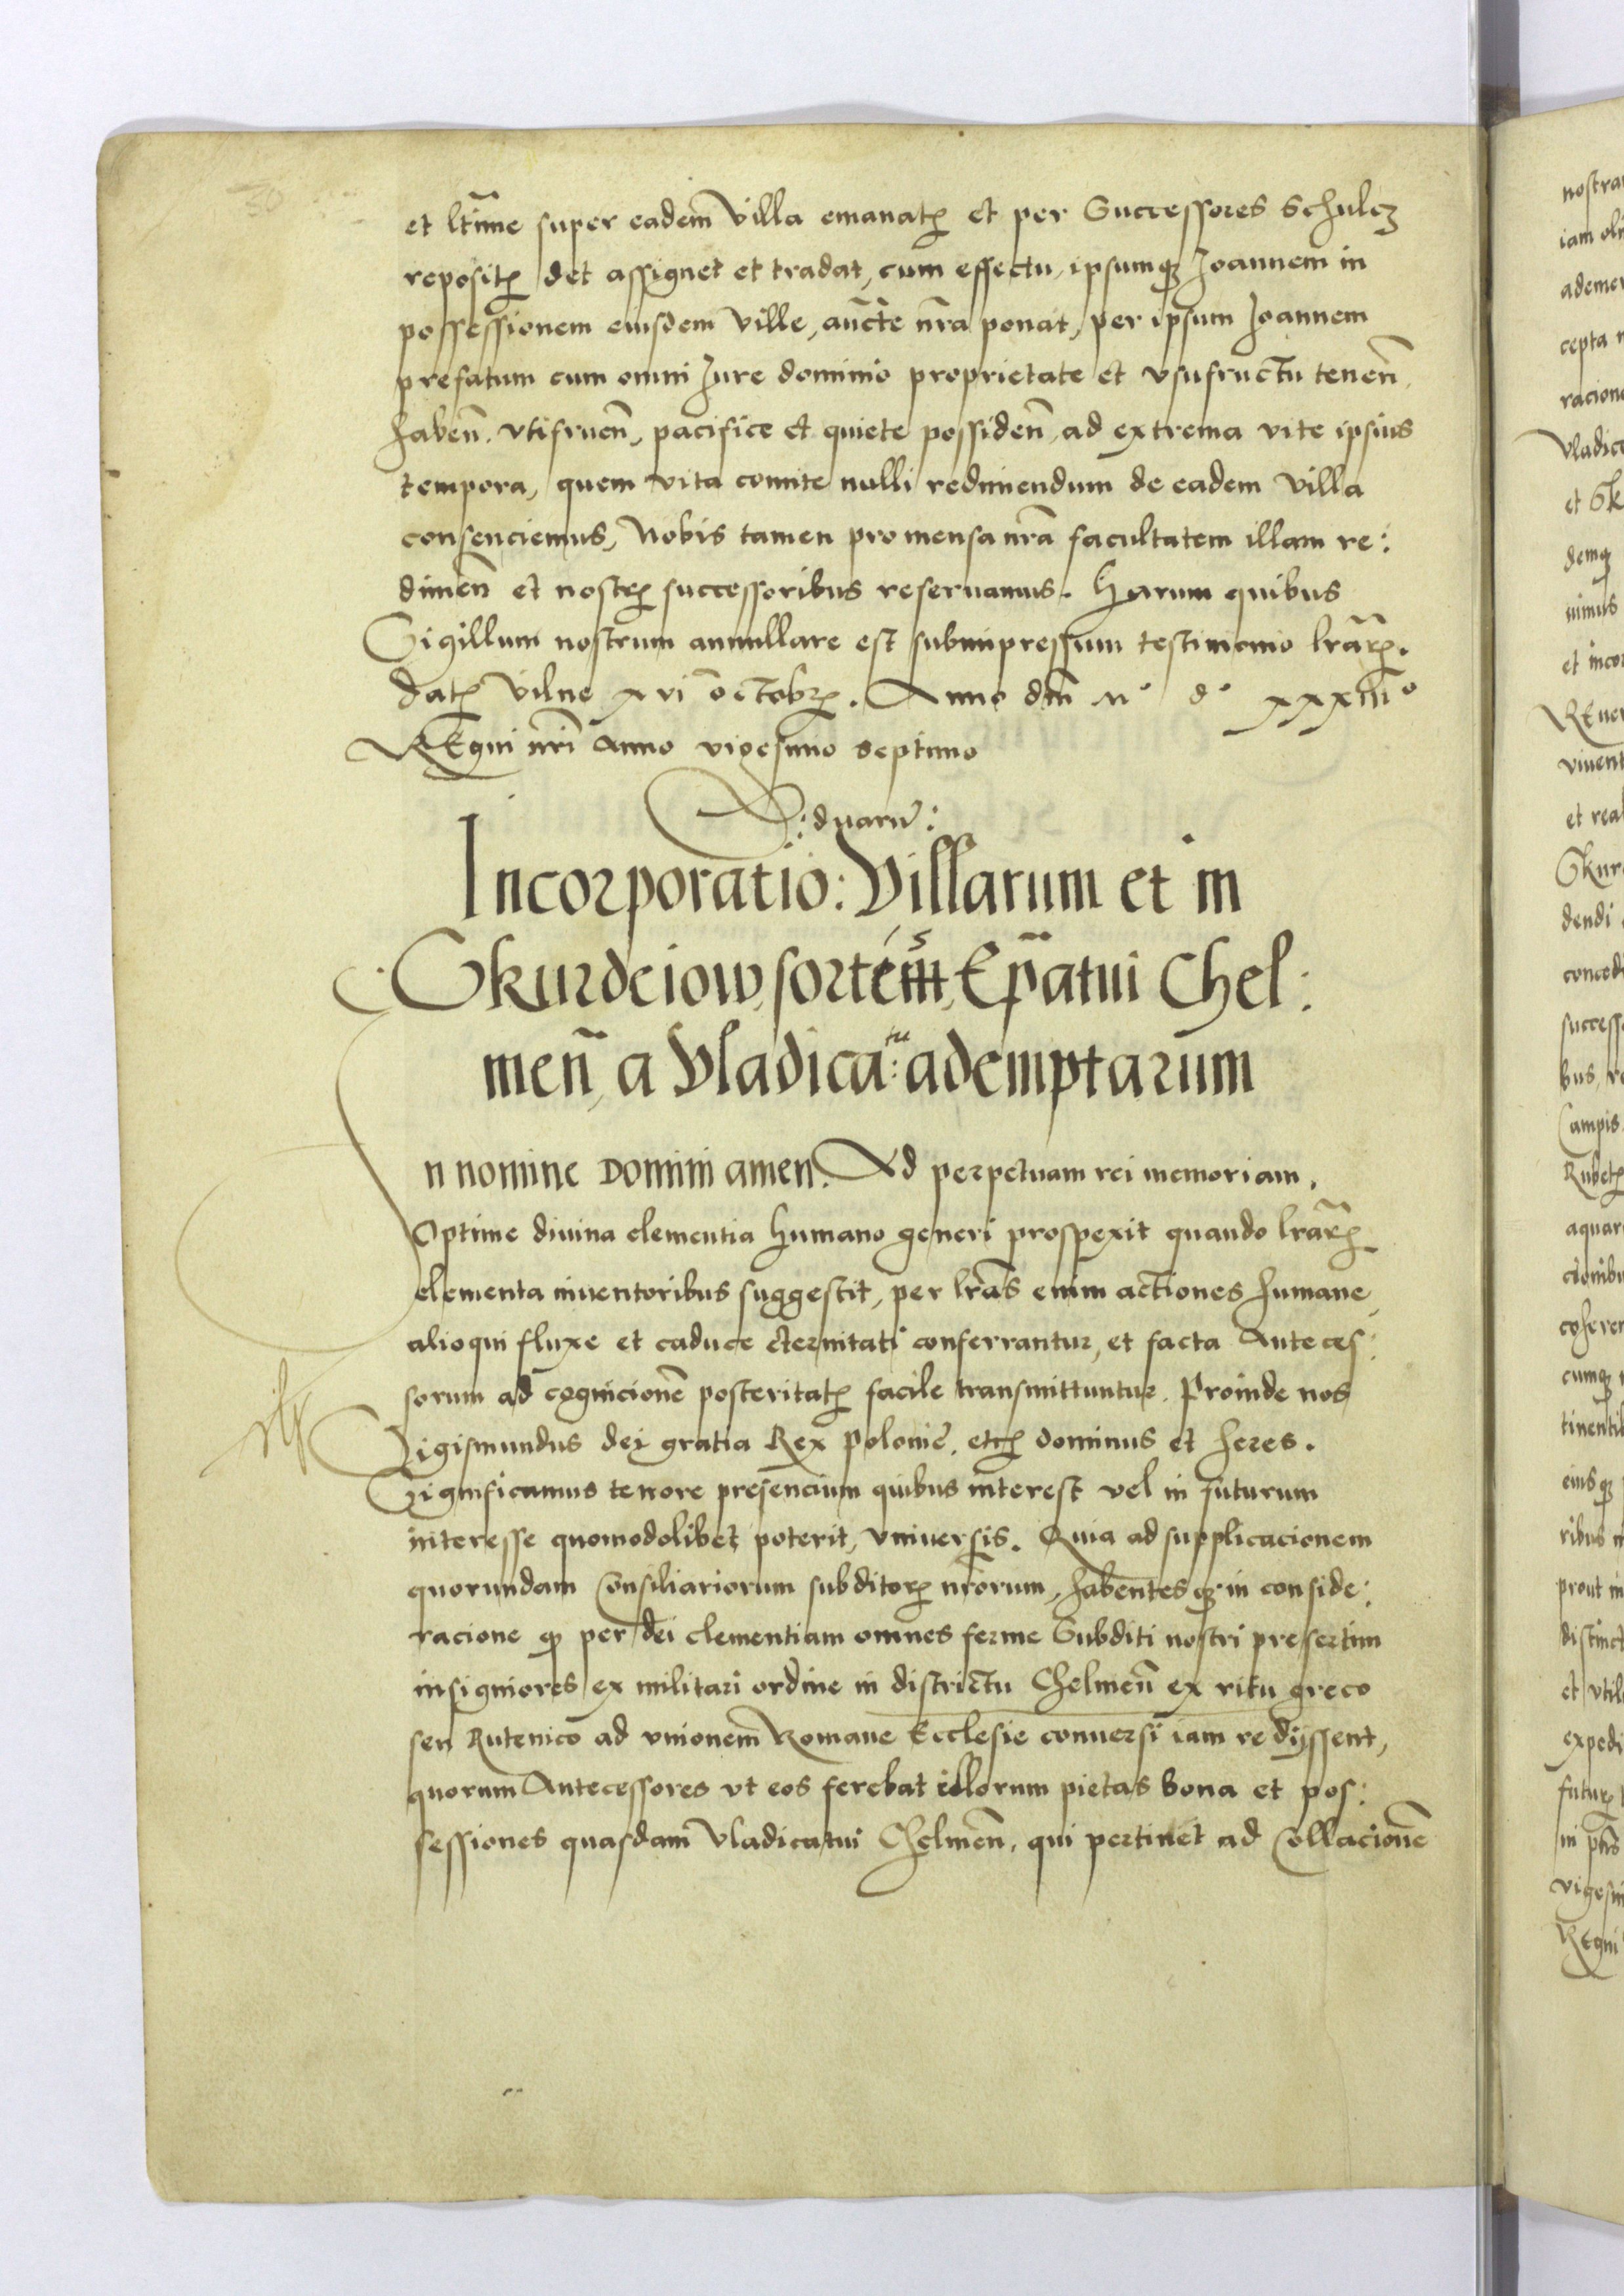 30
et lr̃me super eadem villa emanatꝝ et per Successores Schulcz
repositꝝ det assignet et tradat, cum effectu, ipsumqꝫ Joannem in
possessionem eiusdem ville, auc̃te nr̃a ponat, per ipsum Joannem
prefatum cum omni Jure dominio proprietate et vsufructu tenen̄
haben̄. vtifruen̄, pacifice et quiete possiden̄, ad extrema vite ipsius
tempora, quem vita comite nulli redimendum de eadem villa
consenciemus, Nobis tamen pro mensa nr̃a facultatem illam re:
dimen̄ et nostrꝝ successoribus reseruamus. Harum quibus
Sigillum nostrum annullare est subimpressum testimonio lr̃arꝝ.
datꝝ Vilne xvi octobrꝝ. Anno dni̅ Mº dº xxxiiiº
REgni nr̃i Anno vigesimo septimo
:duarū:
Incorporatio: Villarum et in
Skurdeiow, sortis, Ep̃atui Chel:
men̄, a Vladicatu: ademptarum
n nomine Domini amen. Ad perpetuam rei memoriam.
Optime diuina clementia humano generi prospexit quando lr̃arꝝ
elementa inuentoribus suggestit, per lr̃as enim actiones humane
alioqui fluxe et caduce eternitati conferrantur, et facta Anteces:
sorum ad cognicionē posteritatꝝ facile transmittuntur. Proinde nos
Sigismundus dei gratia Rex polonie, etcꝝ dominus et heres.
Significamus tenore presencium quibus interest vel in futurum
interesse quomodolibet poterit, vniuersis. Quia ad supplicacionem
quorundam Consiliariorum subditorꝝ nr̃orum, habentesqꝫ in conside:
racione qꝫ per dei clementiam omnes ferme Subditi nostri presertim
insigniores ex militari ordine in districtu Chelmen̄ ex ritu greco
seu Rutenico ad vnionem Romane Ecclesie conuersi iam redijssent,
quorum Antecessores vt eos ferebat illorum pietas bona et pos:
sessiones quasdam Vladicatui Chelmen̄, qui pertinet ad Collacionē